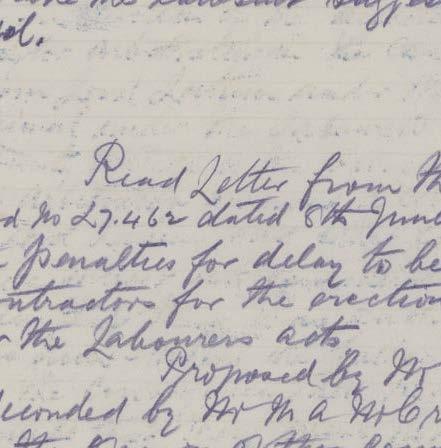 oil.
Read Letter from
d No 27.462 dated 8th June
Penalties for delay to be
ontractors for the erection
the Labourers acts
Proposed by Mr
Seconded by Mr M A McCr